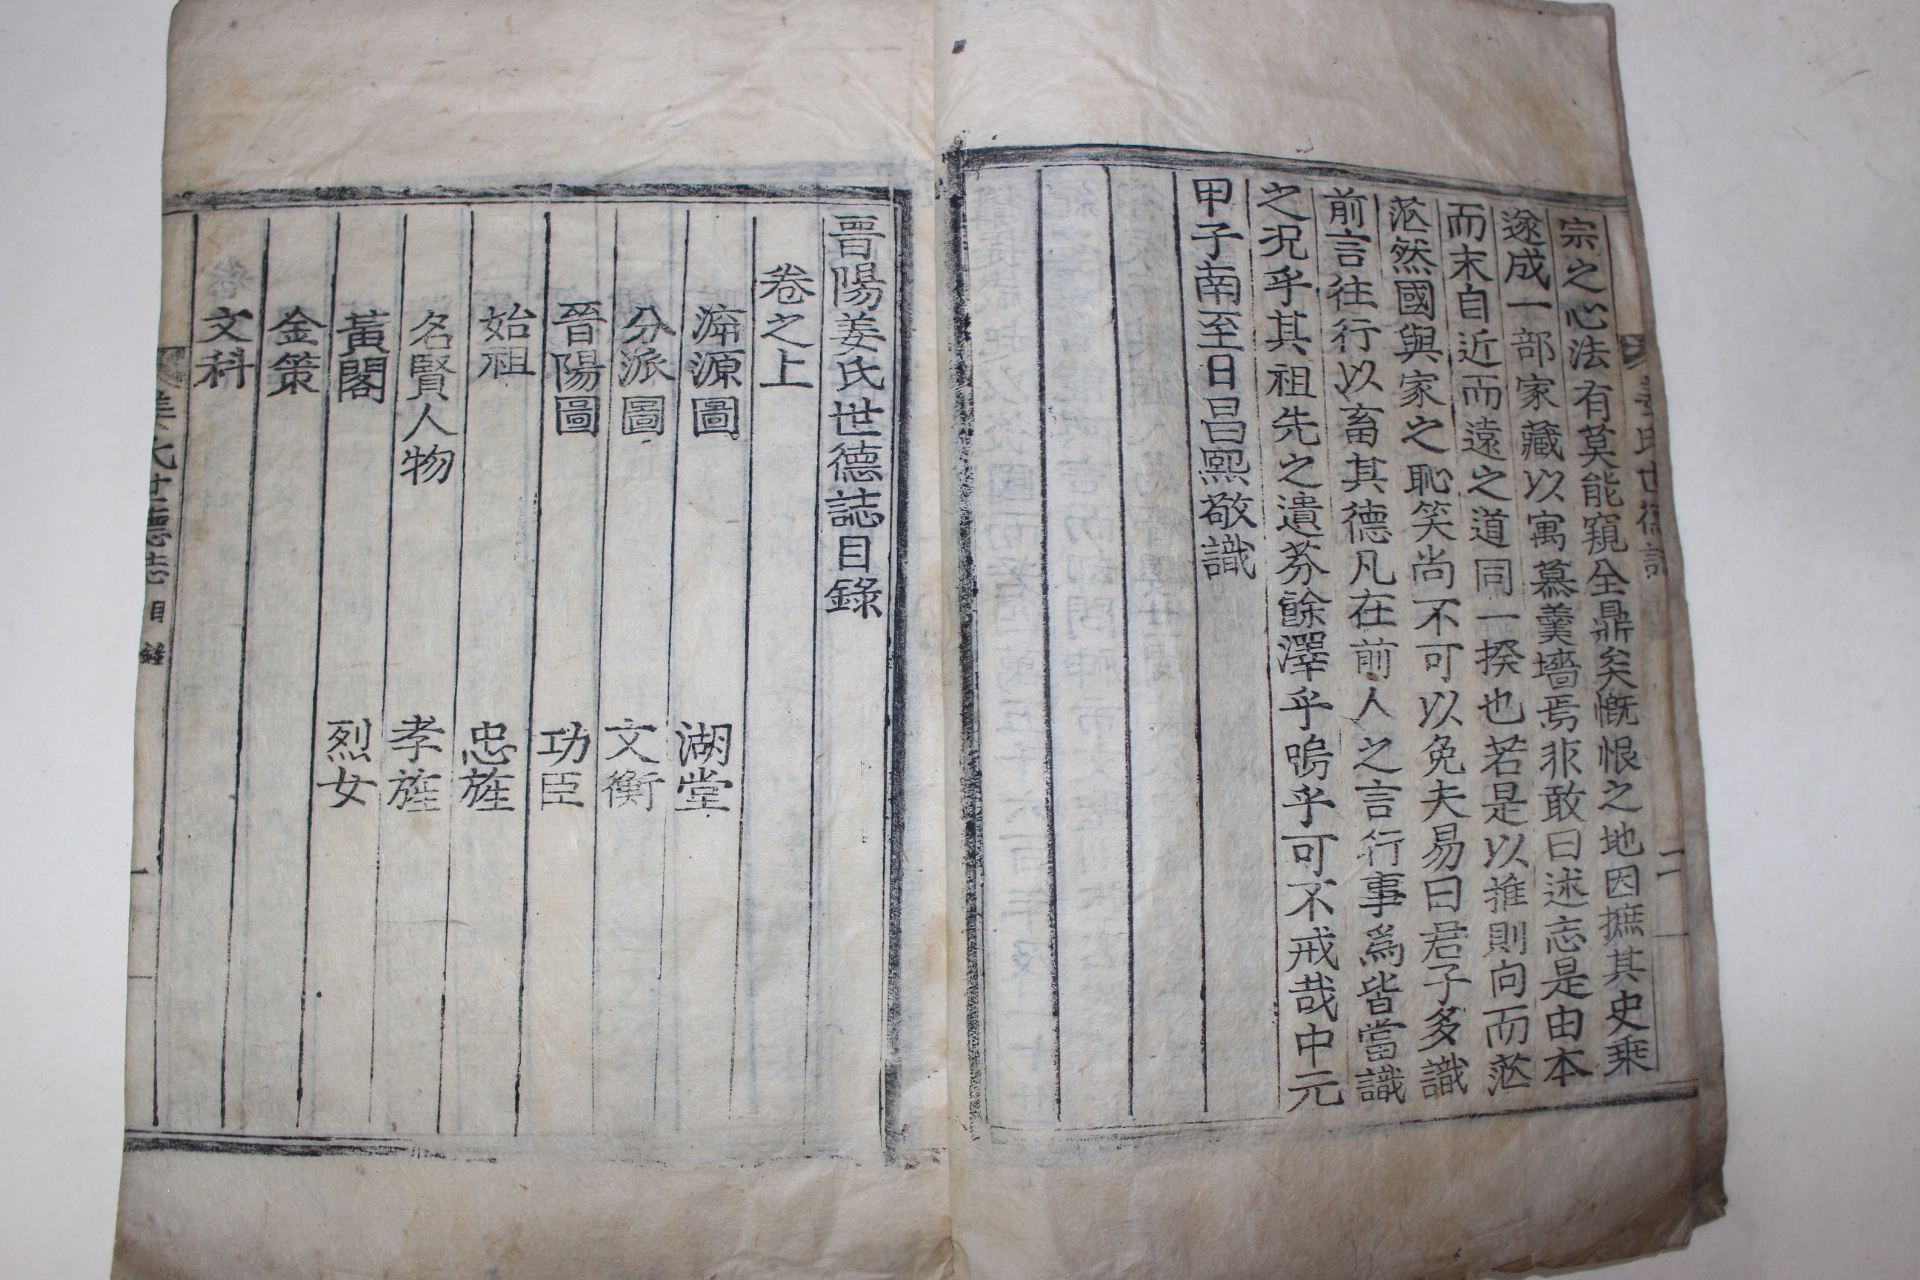 宗之心法有莫能窺全鼎矣慨恨之地因摭其史乘
遂成一部家藏以寓慕羹墻焉非敢曰述忘是由本
而末自近而遠之道同一揆也若是以推則向而茫
茫然國與家之恥笑尚不可以免夫易曰君子多識
前言往行以畜其德凡在前人之言行事爲皆當識
之况乎其祖先之遺芬餘澤乎嗚乎可不戒哉中元
甲子南至日昌熙敬識
姜氏世德誌
二
晉陽姜氏世德誌目錄
卷之上
源圖 湖堂
分派圖 文衡
晉陽圖 功臣
始祖 忠旌
名賢人物 孝旌
黃閣 烈女
金策
文科
姜氏世德誌 目錄
一